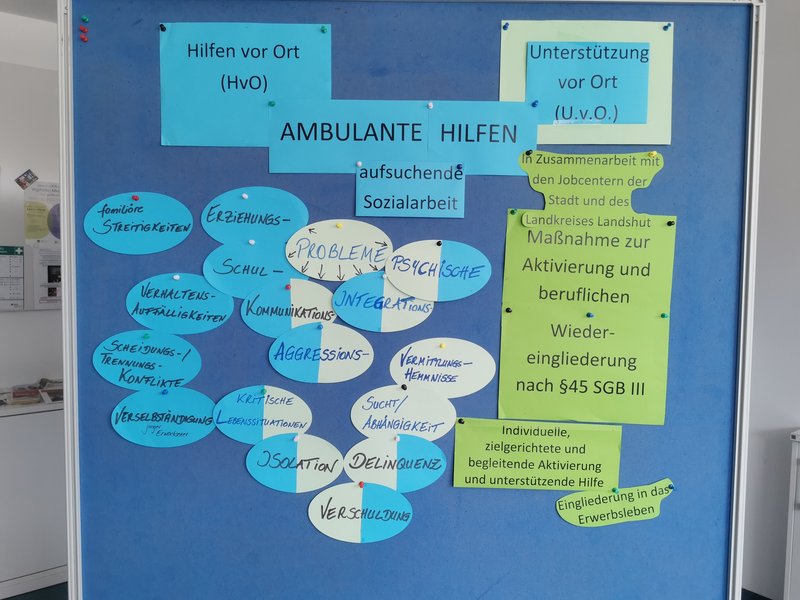 Hilfen vor Ort
(HvO)
Unterstützung
vor Ort
(U.v.O.)
AMBULANTE HILFEN
aufsuchende
Sozialarbeit
In Zusammenarbeit mit
den Jobcentern der
Stadt und des
Landkreises Landshut
Maßnahme zur
Aktivierung und
beruflichen
Wieder-
eingliederung
nach §45 SGB III
Individuelle,
zielgerichtete und
begleitende Aktivierung
und unterstützende Hilfe
Eingliederung in das
Erwerbsleben
familiäre
STREITIGKEITEN
ERZIEHUNGS-
PROBLEME
SCHUL-
PSYCHISCHE
VERHALTENS-
AUFFÄLLIGKEITEN
KOMMUNIKATIONS-
INTEGRATIONS-
SCHEIDUNGS-/
TRENNUNGS-
KONFLIKTE
AGGRESSIONS-
VERMITTLUNGS-
HEMMNISSE
VERSELBSTÄNDIGUNG
junger Erwachsener
KRITISCHE
LEBENSSITUATIONEN
SUCHT/
ABHÄNGIGKEIT
ISOLATION
DELINQUENZ
VERSCHULDUNG